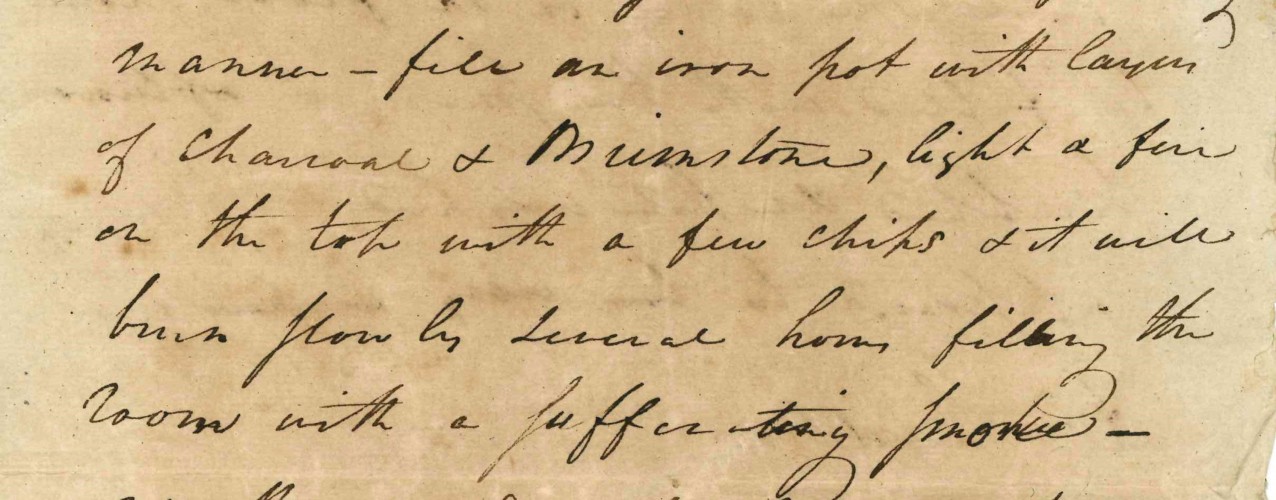 manner – fill an iron pot with layers
of Charcoal & Brimstone, light a fire
on the top with a few chips & it will
burn slowly several hours filling the
room with a suffocating smoke –